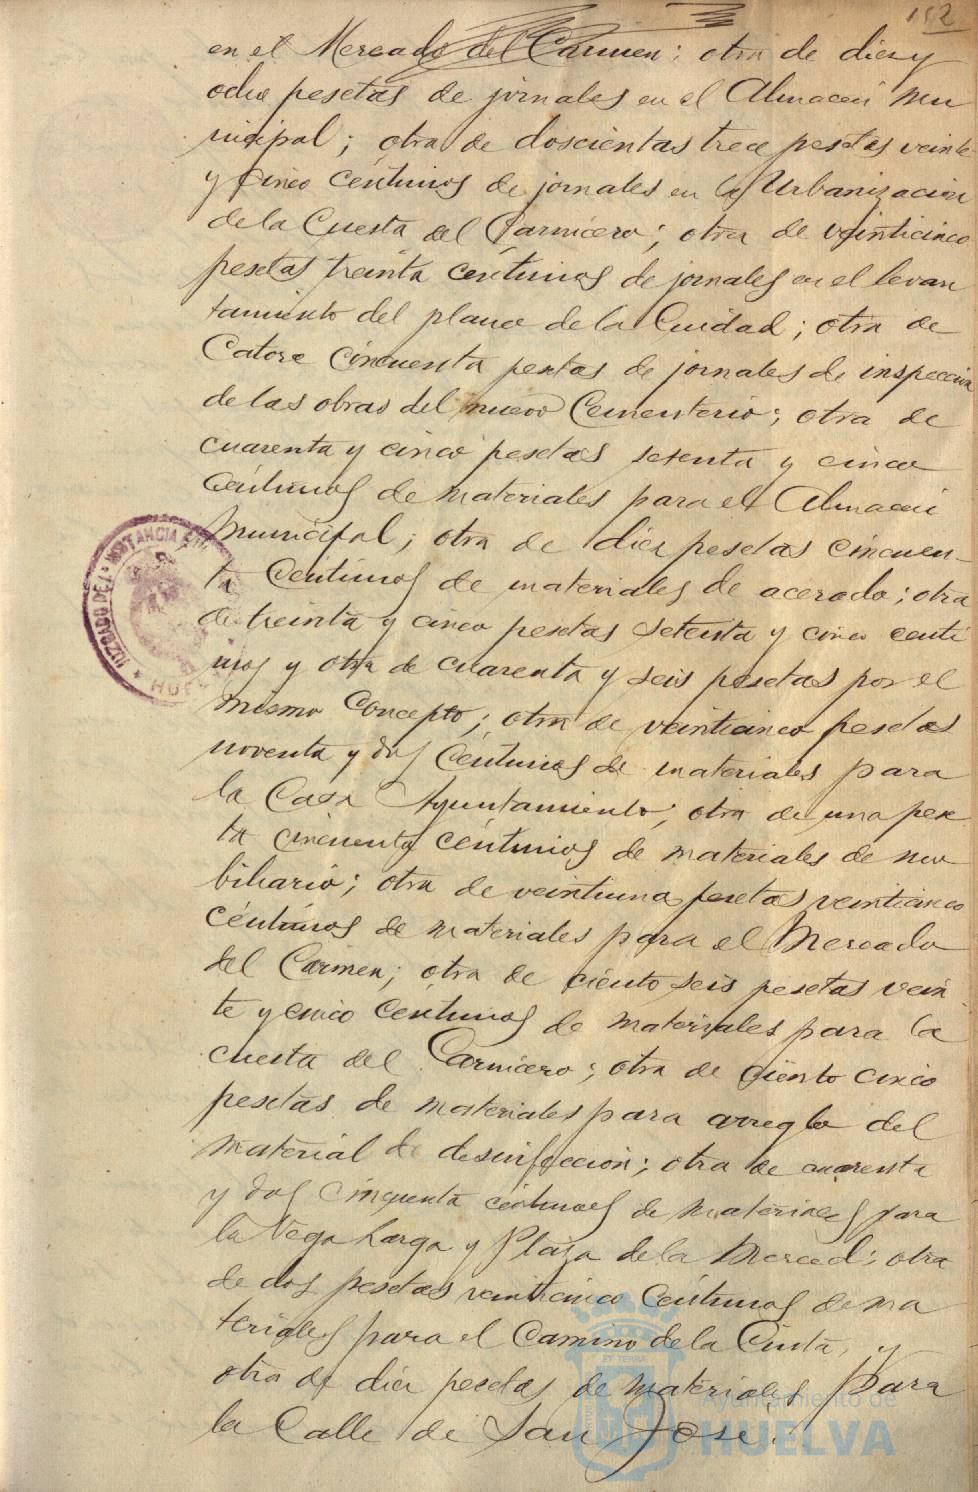 152
en el Mercado del Carmen; otra de diez y
ocho pesetas de jornales en el Almacen Mu
nicipal; otra de doscientas trece pesetas veinte
y cinco céntimos de jornales en la Urbanizacion
de la Cuesta del Carnicero; otra de veinticinco
pesetas treinta céntimos de jornales en el levan
tamiento del plano de la Ciudad; otra de
Catorce cincuenta pesetas de jornales de inspeccion
de las obras del nuevo Cementerio; otra de
cuarenta y cinco pesetas setenta y cinco
céntimos de materiales para el Almacen
Municipal; otra de diez pesetas cincuen-
ta Centimos de materiales de acerado; otra
de treinta y cinco pesetas setenta y cinco centi
mos y otra de cuarenta y seis pesetas por el
mismo Concepto; otra de veinticinco pesetas
noventa y dos Céntimos de materiales para
la Casa Ayuntamiento; otra de una pese
ta cincuenta céntimos de materiales de mo
biliario; otra de veintiuna pesetas veinticinco
céntimos de materiales para el Mercado
del Carmen; otra de ciento seis pesetas vein
te y cinco Céntimos de materiales para la
cuesta del Carnicero; otra de ciento cinco
pesetas de materiales para arreglo del
material de desinfeccion; otra de cuarenta
y dos cincuenta céntimos de materiales para
la Vega Larga y Plaza de la Merced; otra
de dos pesetas veinticinco Céntimos de ma
teriales para el Camino de la Cinta, y
otra de diez pesetas de materiales para
la Calle de San José.
JUZGADO DE 1ª INSTANCIA
HUELVA
Ayuntamiento de
HUELVA